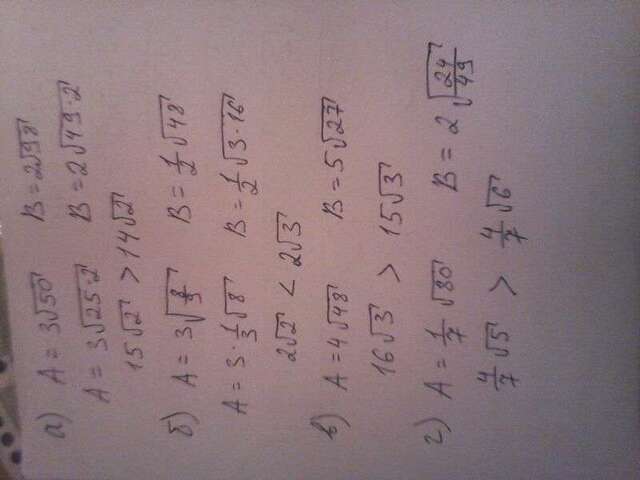 а) A = 3√50 B = 2√98
A = 3√25·2 B = 2√49·2
15√2 > 14√2
б) A = 3√8/9 B = 1/2√48
A = 3·1/3√8 B = 1/2√3·16
2√2 < 2√3
в) A = 4√48 B = 5√27
16√3 > 15√3
г) A = 1/7√80 B = 2√24/49
4/7√5 > 4/7√6